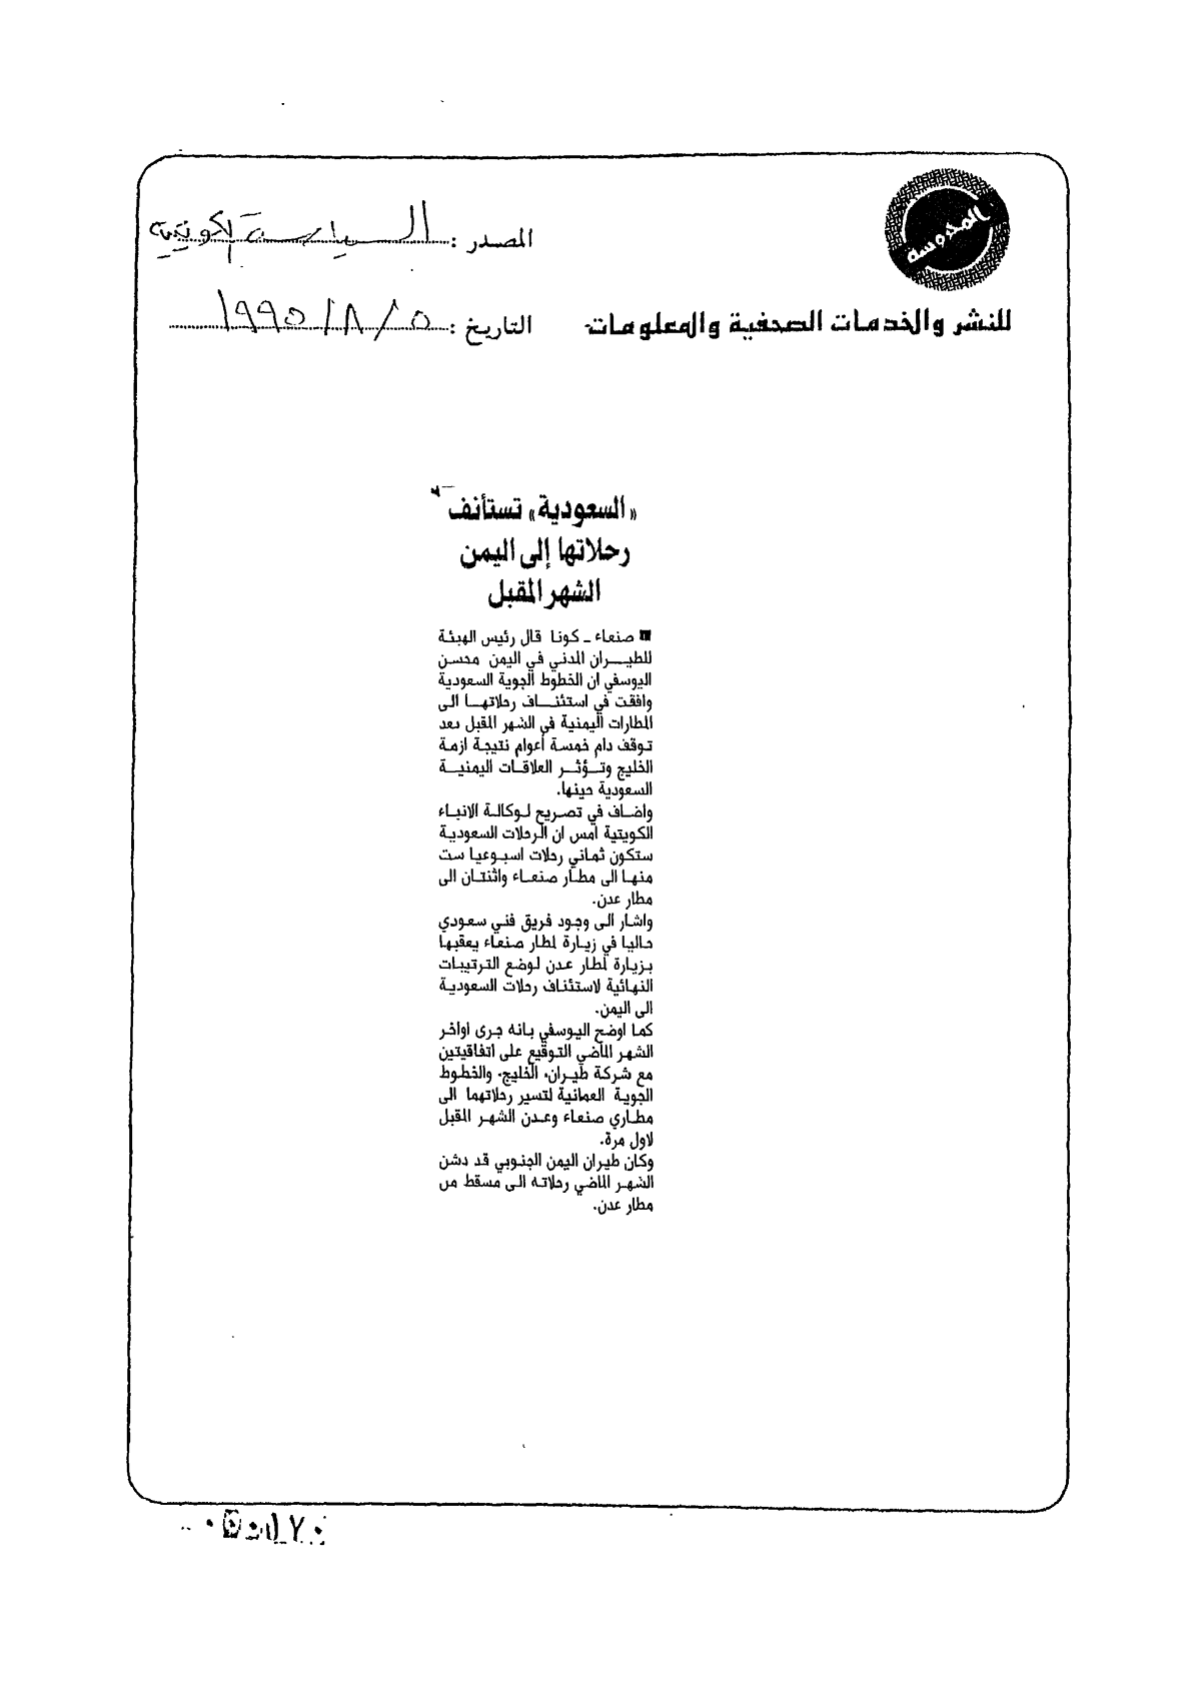 المحروسة
المصدر : السياسة الكويتية
للنشر والخدمات الصحفية والمعلومات
التاريخ : ٥ / ٨ / ١٩٩٥
«السعودية» تستأنف
رحلاتها إلى اليمن
الشهر المقبل
صنعاء ـ كونا قال رئيس الهيئة
للطيـــران المدني في اليمن محسن
اليوسفي ان الخطوط الجوية السعودية
وافقت في استئنـــاف رحلاتهـــا الـى
المطارات اليمنية في الشهر المقبل بعد
توقف دام خمسة أعوام نتيجة ازمـة
الخليج وتـــؤثـــر العلاقـات اليمنيـــة
السعودية حينها.
واضـاف في تصريح لـوكالـة الانبـاء
الكويتية امس ان الرحلات السعوديـة
ستكون ثمـاني رحلات اسبـوعيـا ست
منهـا الى مطـار صنعـاء واثنتـان الى
مطار عدن.
واشار الى وجود فريق فني سعودي
حاليا في زيـارة لمطار صنعاء يعقبهـا
بـزيارة لمطار عدن لـوضع الترتيبـات
النهائية لاستئناف رحلات السعوديـة
الى اليمن.
كمـا اوضح اليوسفي بـانه جرى اواخـر
الشهر الماضي التوقيع على اتفاقيتين
مع شركة طيـران، الخليج، والخطـوط
الجوية العمانية لتسير رحلاتهما الى
مطـاري صنعـاء وعـدن الشهـر المقبل
لاول مرة.
وكان طيران اليمن الجنوبي قد دشن
الشهـر الماضي رحلاتـه الـى مسقط من
مطار عدن.